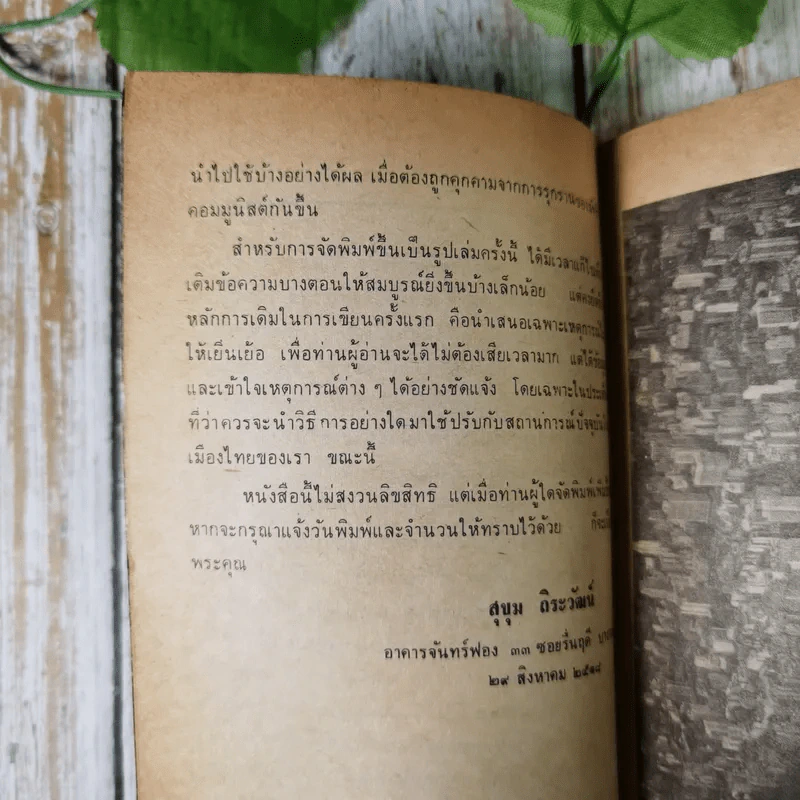 นำไปใช้บ้างอย่างได้ผล เมื่อต้องถูกคุกคามจากการรุกรานของ
คอมมูนิสต์กันขึ้น
สำหรับการจัดพิมพ์ขึ้นเป็นรูปเล่มครั้งนี้ ได้มีเวลา
เติมข้อความบางตอนให้สมบูรณ์ยิ่งขึ้นบ้างเล็กน้อย
หลักการเดิมในการเขียนครั้งแรก คือนำเสนอเฉพาะเหตุการณ์
ให้เย็นเย้อ เพื่อท่านผู้อ่านจะได้ไม่ต้องเสียเวลามาก แต่ได้
และเข้าใจเหตุการณ์ต่าง ๆ ได้อย่างชัดแจ้ง โดยเฉพาะใน
ที่ว่าควรจะนำวิธีการอย่างใดมาใช้ปรับกับสถานการณ์ปัจจุบัน
เมืองไทยของเรา ขณะนี้
หนังสือนี้ไม่สงวนลิขสิทธิ แต่เมื่อท่านผู้ใดจัดพิมพ์
หากจะกรุณาแจ้งวันพิมพ์และจำนวนให้ทราบไว้ด้วย ก็จะ
พระคุณ
สุขุม ถิระวัฒน์
อาคารจันทร์ฟอง ๓๓ ซอยรื่นฤดี
๒๙ สิงหาคม ๒๕๑๘